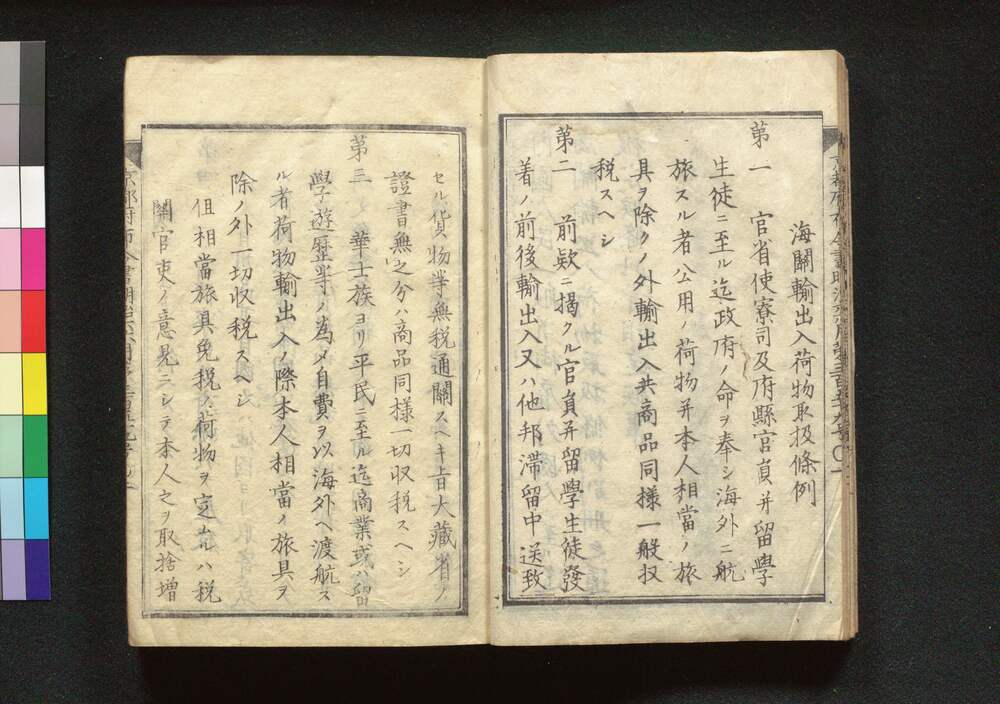 海關輸出入荷物取扱條例
第一 官省使寮司及府縣官員并留學
生徒ニ至ル迄政府ノ命ヲ奉シ海外ニ航
旅スル者公用ノ荷物并本人相當ノ旅
具ヲ除クノ外輸出入共商品同様一般収
税スヘシ
第二 前欵ニ掲クル官員并留學生徒發
着ノ前後輸出入又ハ他邦滞留中送致
セル貨物等無税通關スヘキ旨大藏省ノ
證書無之分ハ商品同様一切収税スヘシ
第三 華士族ヨリ平民ニ至ル迄商業或ハ留
學遊歴等ノ為メ自費ヲ以海外ヘ渡航ス
ル者荷物輸出入ノ際本人相當ノ旅具ヲ
除ノ外一切収税スヘシ
但相當旅具免税ノ荷物ヲ定ルハ税
關官吏ノ意見ニシテ本人之ヲ取捨増